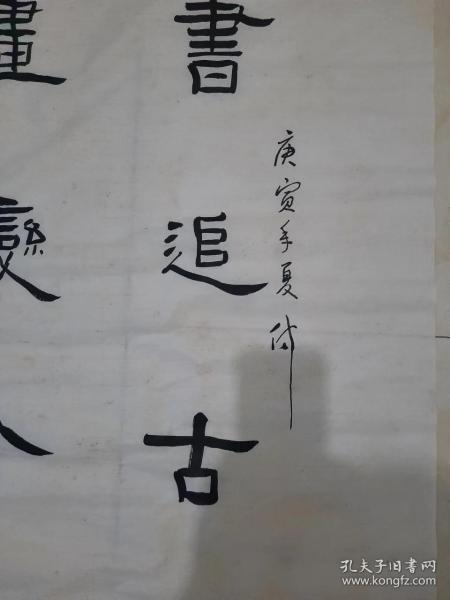 庚寅年夏
書追古
畫變
孔夫子旧书网
www.kongfz.com